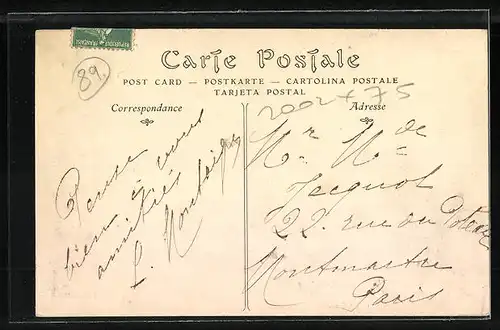 REPUBLIQUE FRANÇAISE
89
Carte Postale
POST CARD — POSTKARTE — CARTOLINA POSTALE
TARJETA POSTAL
Correspondance
Adresse
2002 + 75
Pense
bien à vous
amitiés
L.
Mr Mde
Jacquot
22 rue du Poteau
Montmartre
Paris